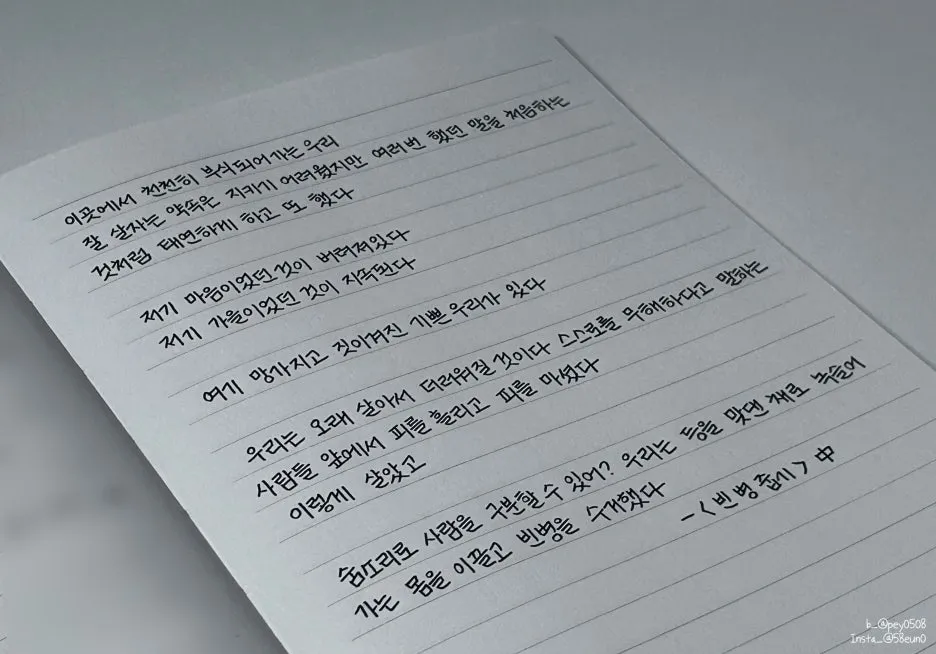 이곳에서 천천히 부식되어가는 우리
잘 살자는 약속은 지키기 어려웠지만 여러번 했던 말을 처음하는
것처럼 태연하게 하고 또 했다
저기 마음이었던 것이 버려져있다
저기 가을이었던 것이 지속된다
여기 망가지고 짓이겨진 기쁜 우리가 있다
우리는 오래 살아서 더러워질 것이다 스스로를 무해하다고 말하는
사람들 앞에서 피를 흘리고 피를 마셨다
이렇게 살았고
숨소리로 사람을 구분할 수 있어? 우리는 등을 맞댄 채로 녹슬어
가는 몸을 이끌고 빈병을 수거했다
-<빈 병 줍기> 中
b_@pey0508
Insta_@58eun0